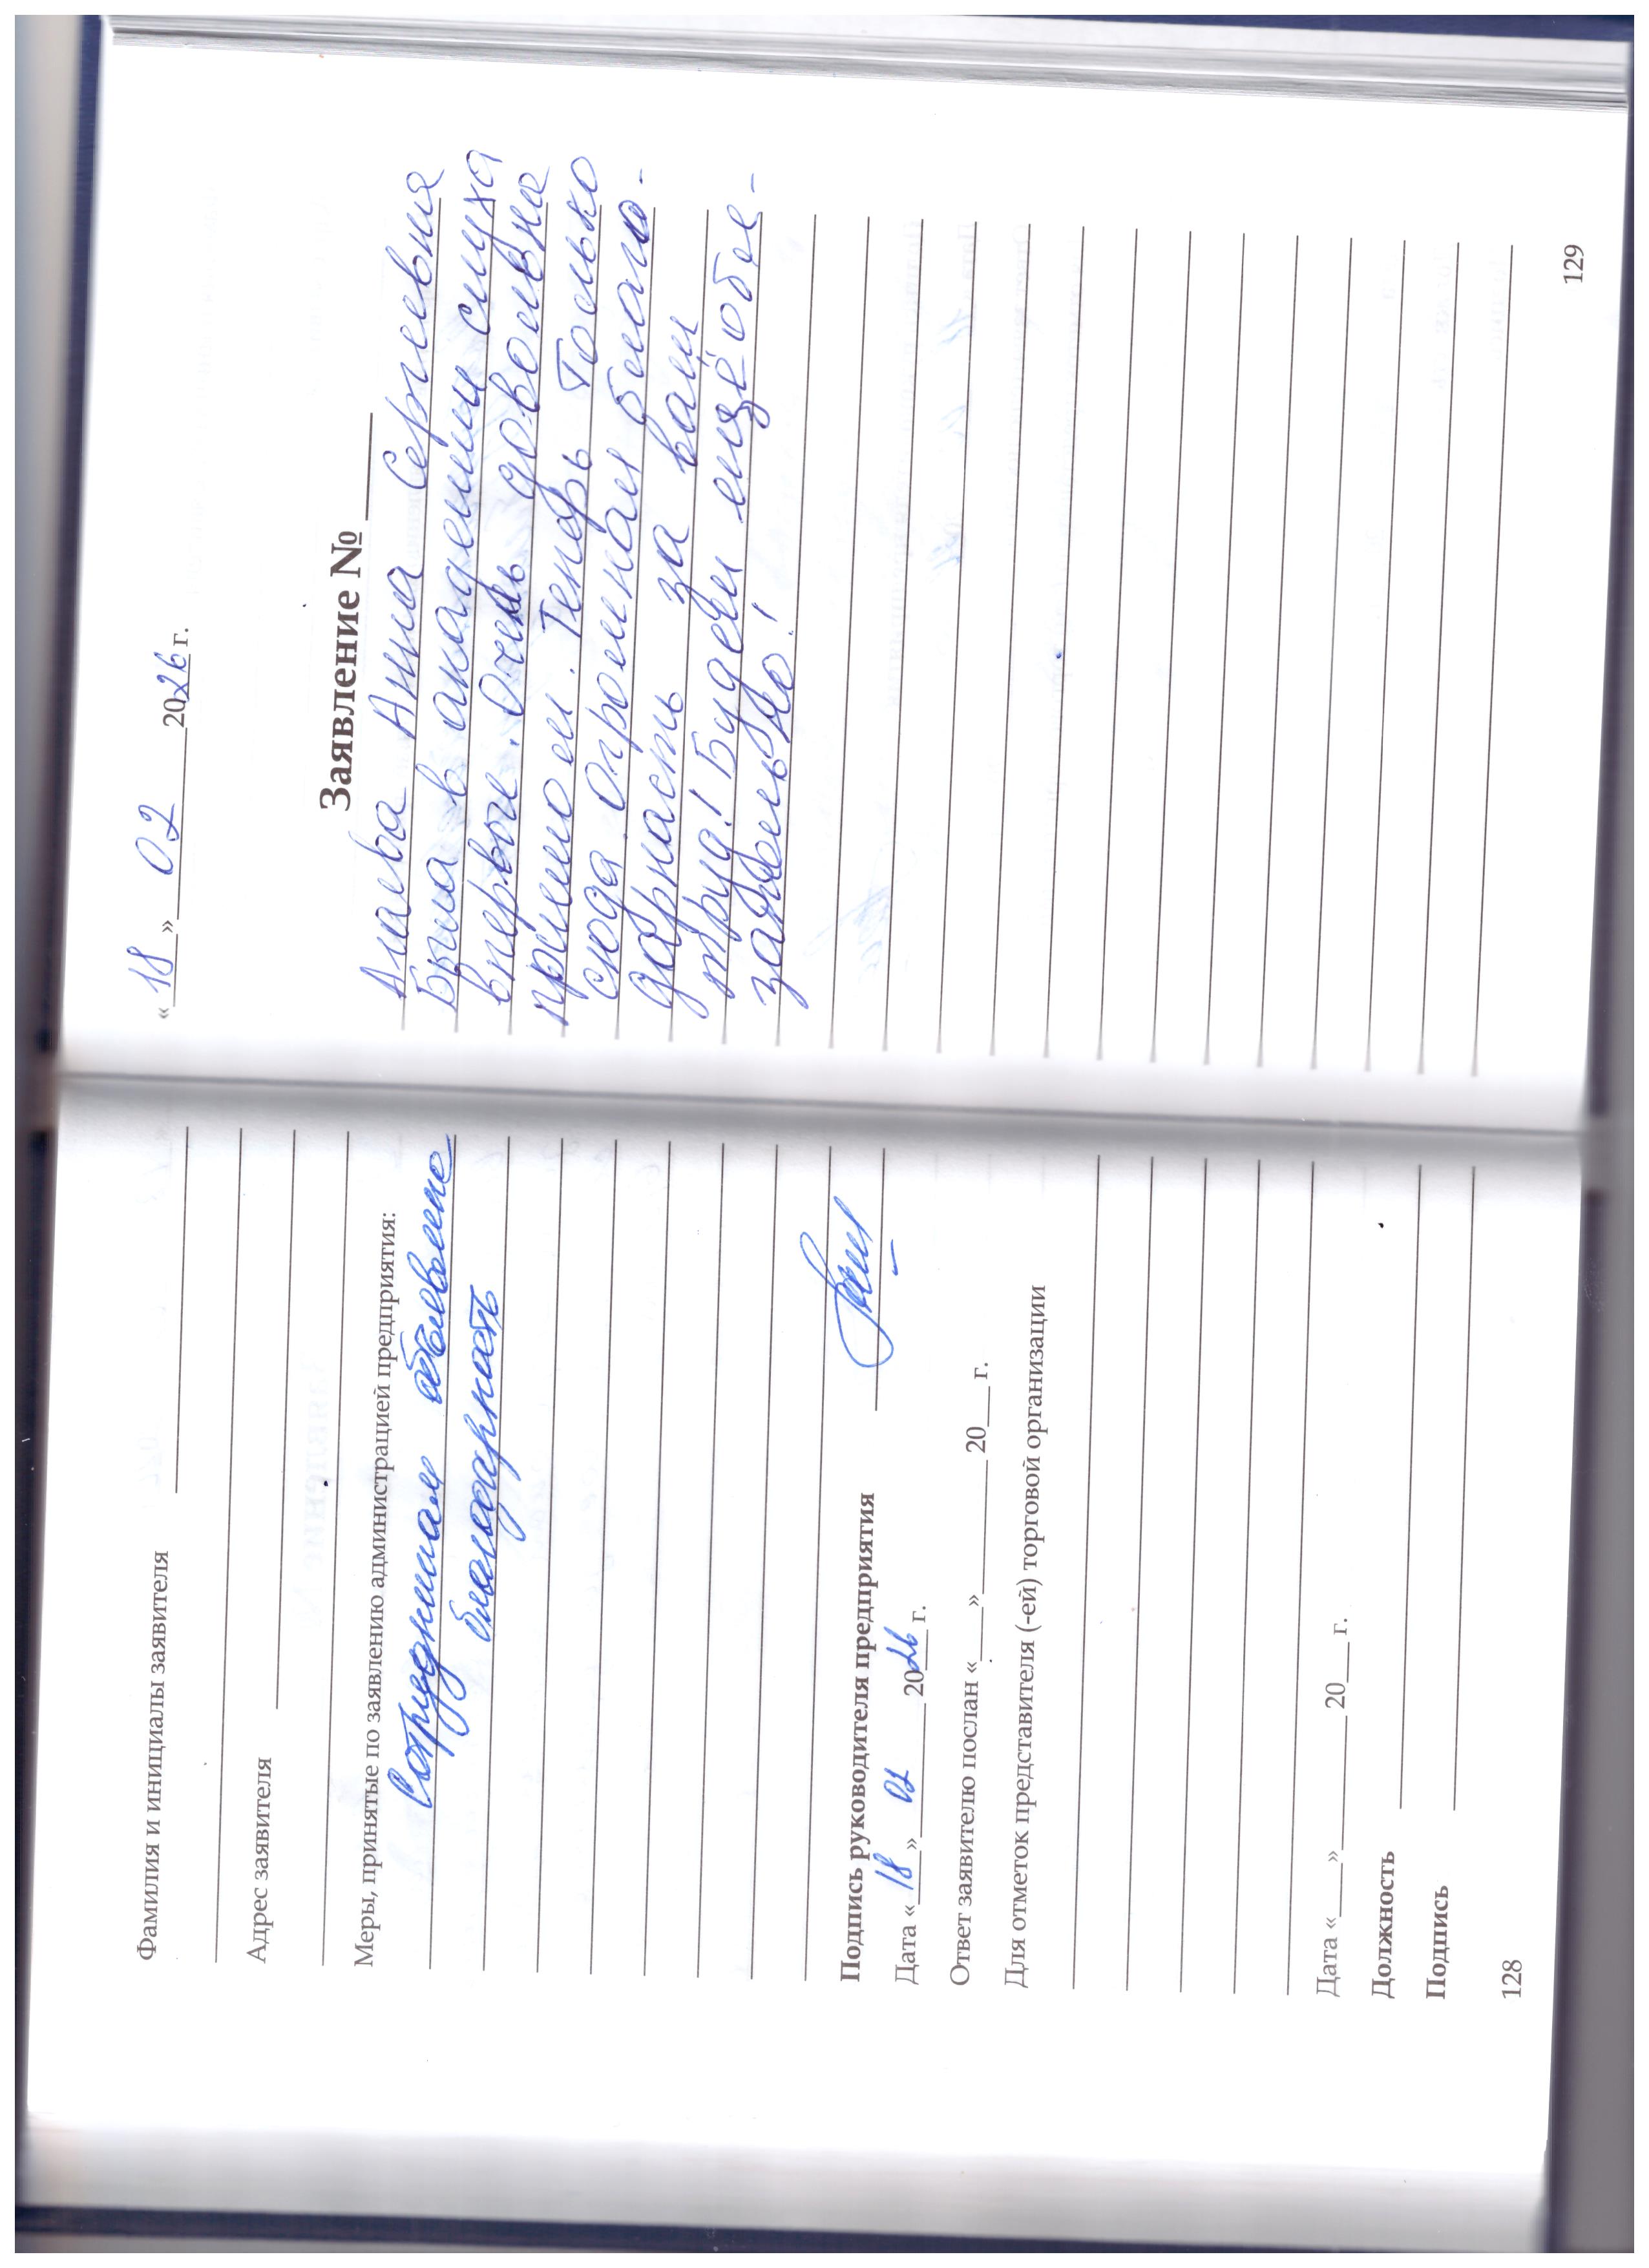 Фамилия и инициалы заявителя
Адрес заявителя
Меры, принятые по заявлению администрацией предприятия:
Сотрудникам объявлено
благодарность
Подпись руководителя предприятия
Дата « 18 » 02 2026 г.
Ответ заявителю послан «___»________ 20___ г.
Для отметок представителя (-ей) торговой организации
Дата «____»________ 20___ г.
Должность
Подпись
128
« 18 » 02 2026 г.
Заявление № ____
Анна Сергеевна
Была в академии слуха
впервые. Очень довольна
приемом. Теперь только
сюда. Огромная благо-
дарность за ваш
труд! Будем ещё обя-
зательно!
129